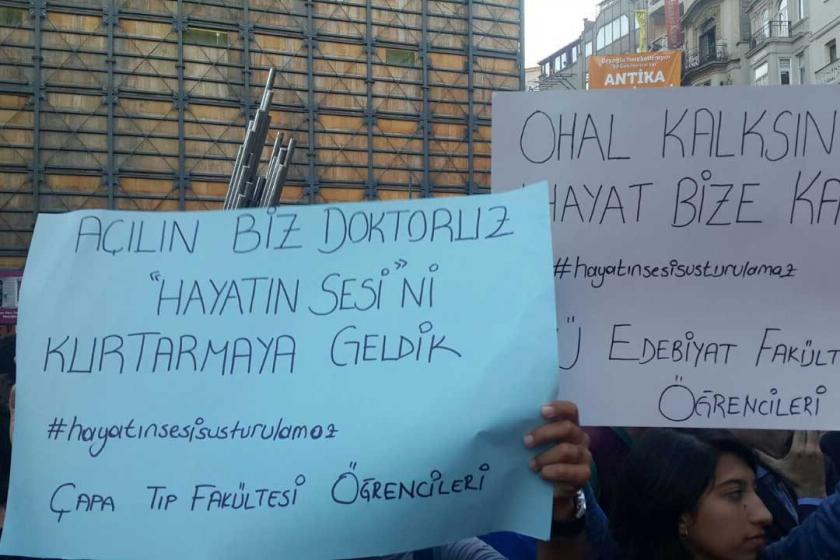 AÇILIN BİZ DOKTORUZ
"HAYATIN SESİ"Nİ
KURTARMAYA GELDİK
#hayatınsesisusturulamaz
ÇAPA TIP FAKÜLTESİ ÖĞRENCİLERİ
OHAL KALKSIN
HAYAT BİZE KA
#hayatınsesisusturulamaz
Ü EDEBİYAT FAKÜLT
ÖĞRENCİLERİ
ANTİKA